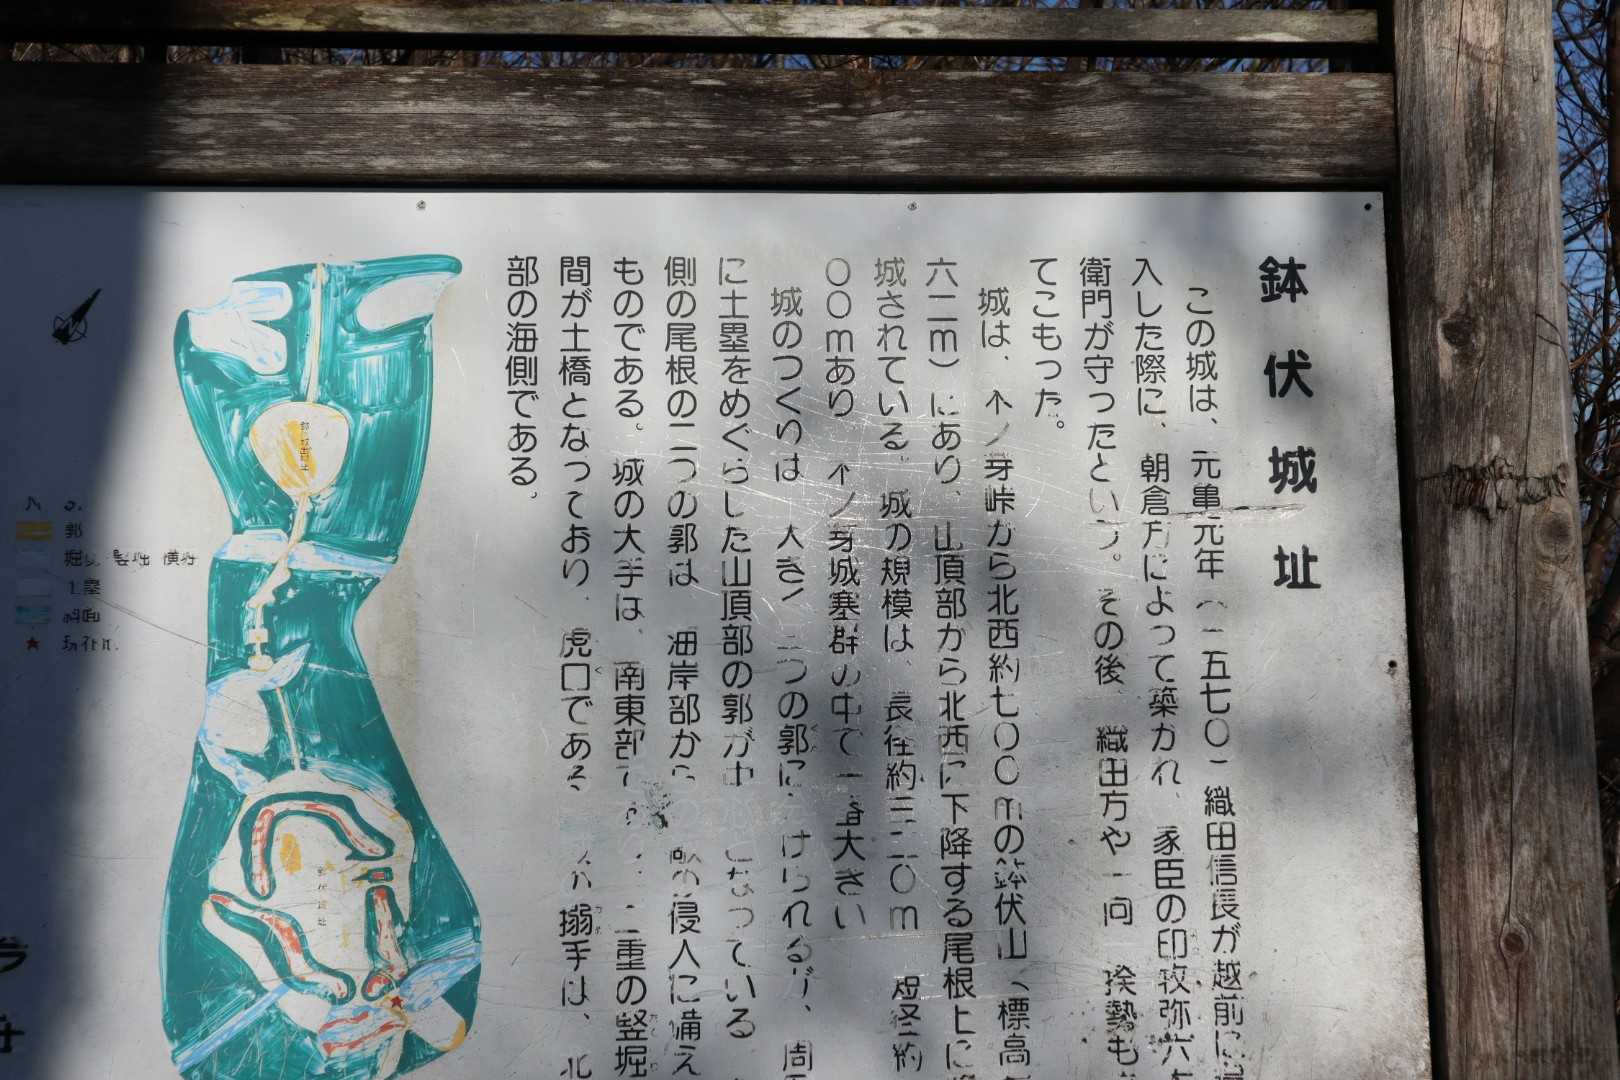 鉢伏城址
この城は、元亀元年(一五七〇)織田信長が越前に
入した際に、朝倉方によって築かれ、家臣の印牧弥六
衛門が守ったという。その後、織田方や一向一揆勢も
てこもった。
城は、木ノ芽峠から北西約七〇〇mの鉢伏山(標高
六二m)にあり、山頂部から北西に下降する尾根上に
城されている。城の規模は、長径約三二〇m 短径約
〇〇mあり 木ノ芽城塞群の中で一番大きい
城のつくりは 大きく 二つの郭に けられるが、周
に土塁をめぐらした山頂部の郭が中 となっている
側の尾根の二つの郭は 海岸部からの 敵の侵入に備え
ものである。城の大手は、南東部で 二重の竪堀
間が土橋となっており、虎口である 搦手は、北
部の海側である。
郭
堀切 竪堀 横堀
土塁
斜面
鉢伏城址